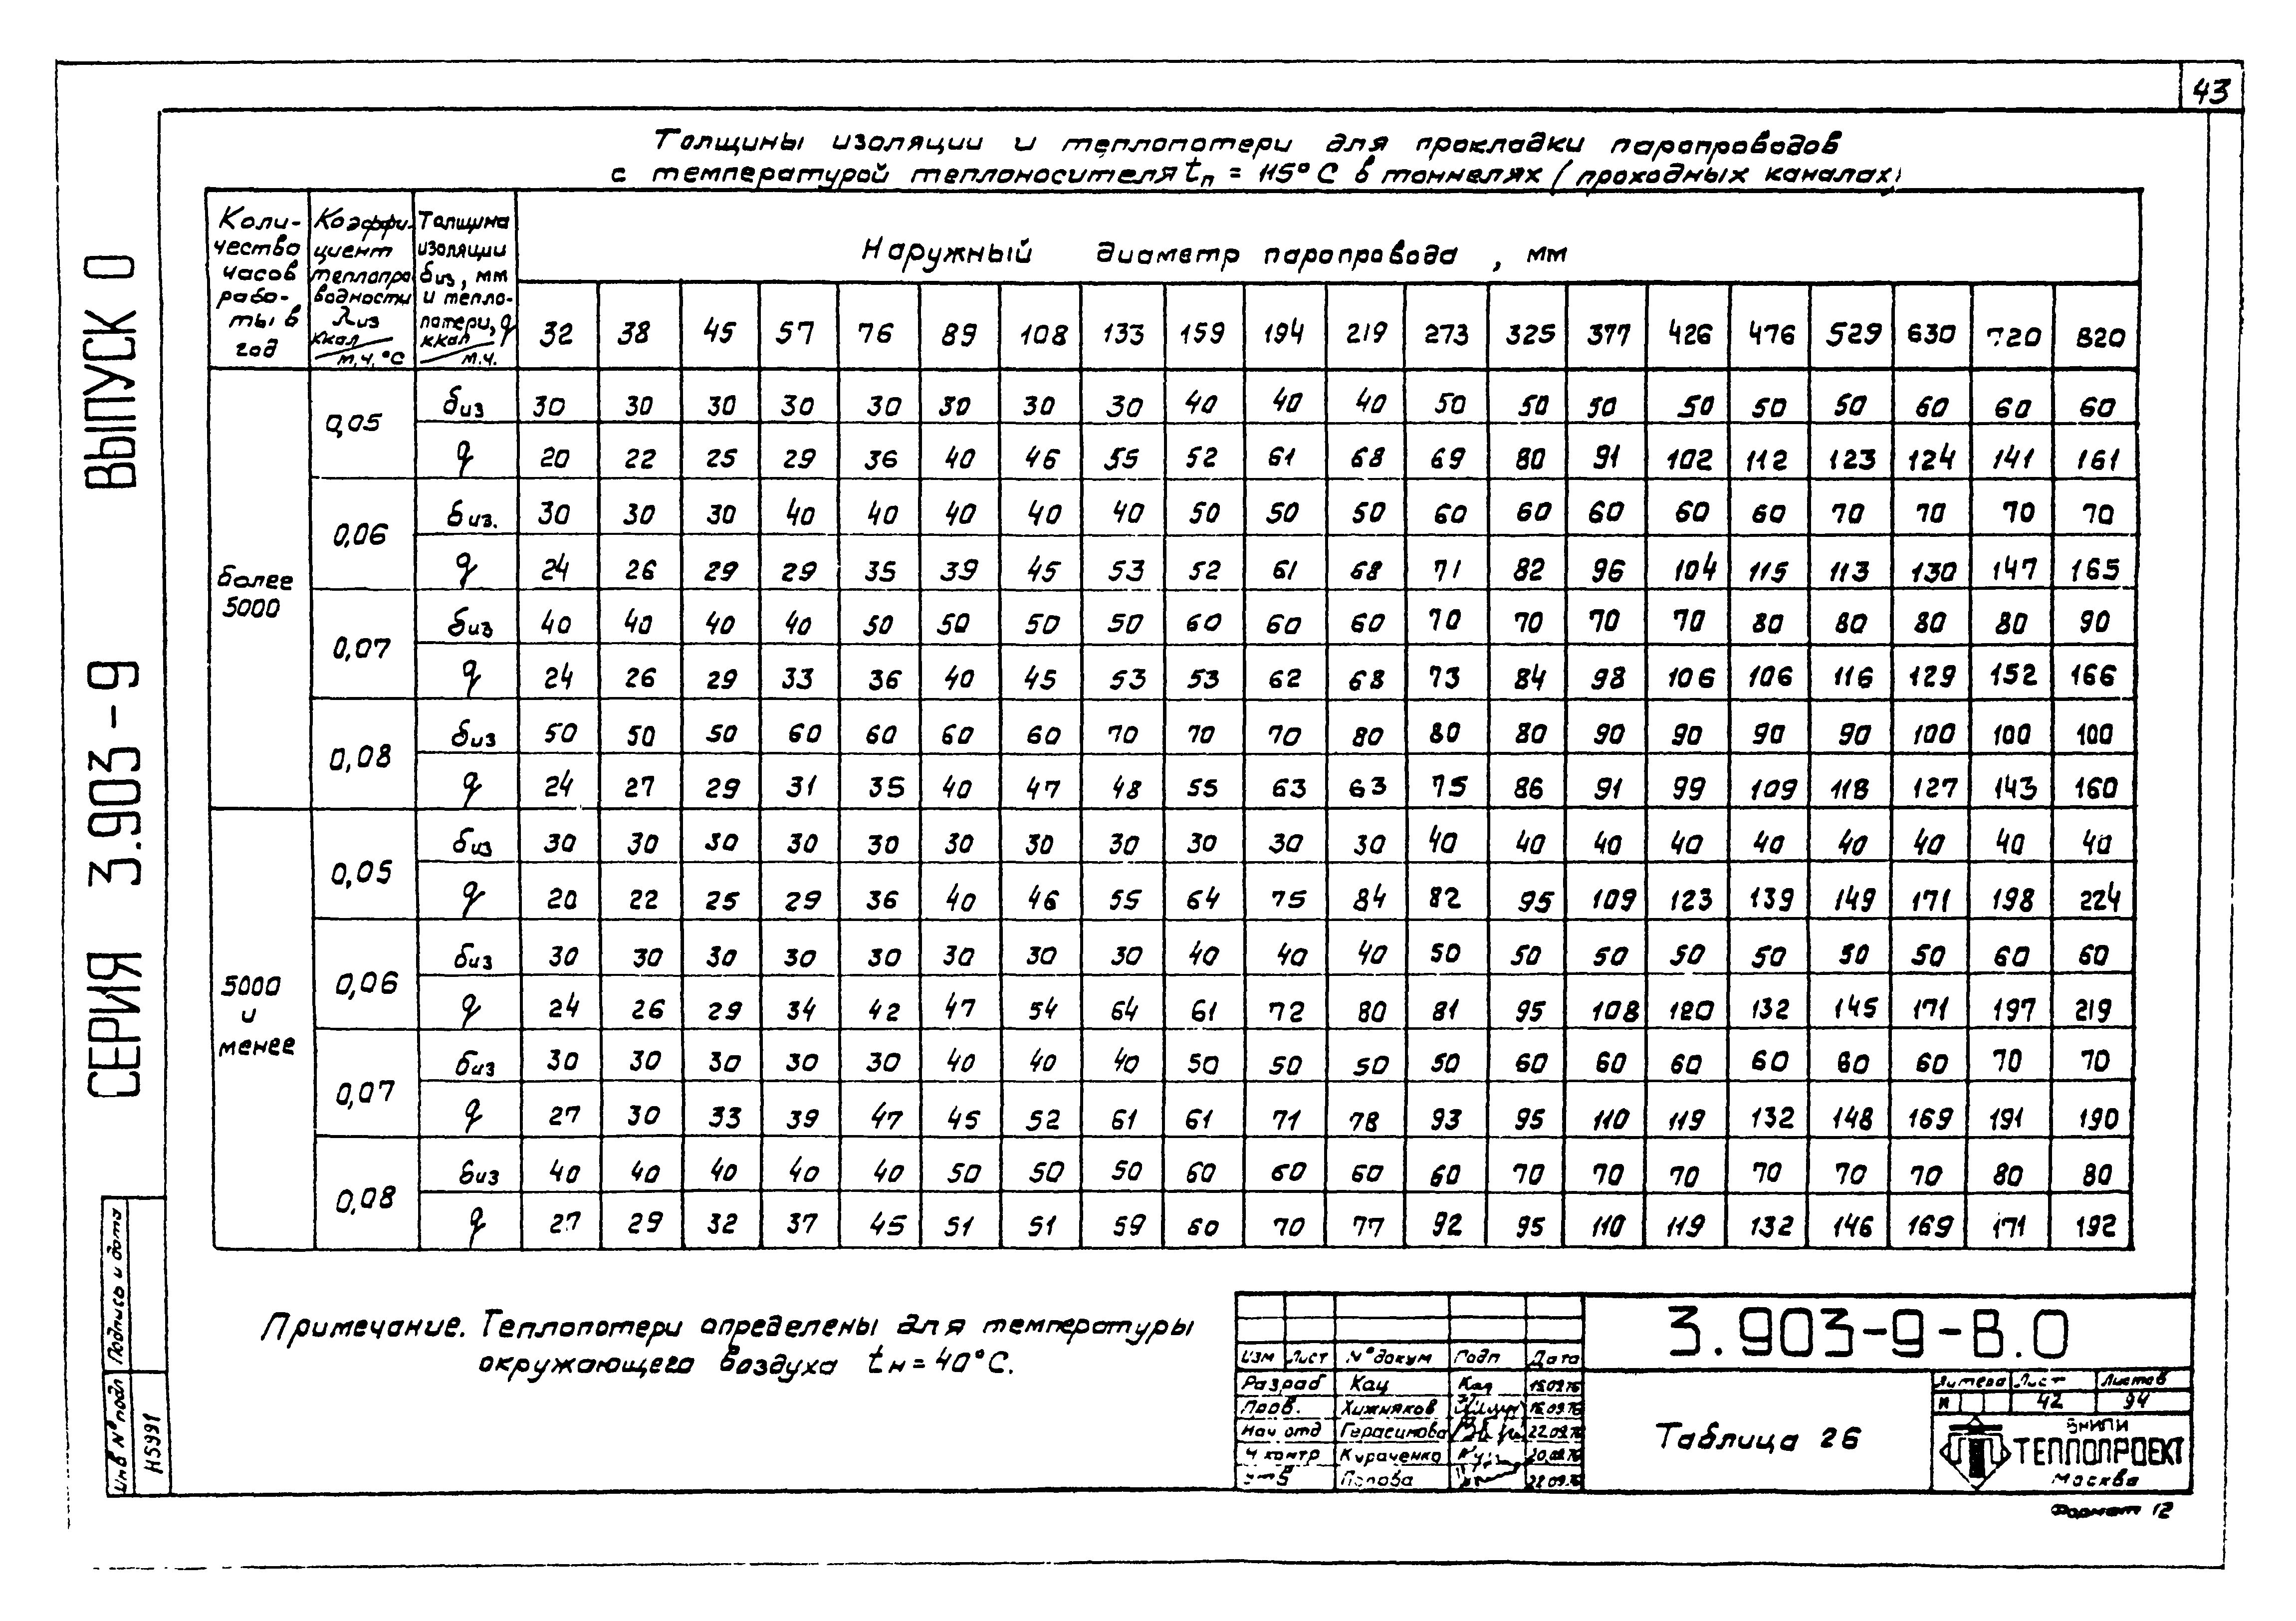 43
Толщины изоляции и теплопотери для прокладки паропроводов
с температурой теплоносителя tп = 115°С в тоннелях (проходных каналах)
Коли-
чество
часов
рабо-
ты в
год
Коэффи-
циент
теплопро
водности
λиз
ккал
м.ч.°С
Толщина
изоляции
δиз, мм
и тепло-
потери, q
ккал
м.ч.
Наружный диаметр паропровода, мм
32 38 45 57 76 89 108 133 159 194 219 273 325 377 426 476 529 630 720 820
более
5000
0,05
δиз 30 30 30 30 30 30 30 30 40 40 40 50 50 50 50 50 50 60 60 60
q 20 22 25 29 36 40 46 55 52 61 68 69 80 91 102 112 123 124 141 161
0,06
δиз. 30 30 30 40 40 40 40 40 50 50 50 60 60 60 60 60 70 70 70 70
q 24 26 29 29 35 39 45 53 52 61 68 71 82 96 104 115 113 130 147 165
0,07
δиз 40 40 40 40 50 50 50 50 60 60 60 70 70 70 70 80 80 80 80 90
q 24 26 29 33 36 40 45 53 53 62 68 73 84 98 106 106 116 129 152 166
0,08
δиз 50 50 50 60 60 60 60 70 70 70 80 80 80 90 90 90 90 100 100 100
q 24 27 29 31 35 40 47 48 55 63 63 75 86 91 99 109 118 127 143 160
5000
и
менее
0,05
δиз 30 30 30 30 30 30 30 30 30 30 30 40 40 40 40 40 40 40 40 40
q 20 22 25 29 36 40 46 55 64 75 84 82 95 109 123 139 149 171 198 224
0,06
δиз 30 30 30 30 30 30 30 30 40 40 40 50 50 50 50 50 50 50 60 60
q 24 26 29 34 42 47 54 64 61 72 80 81 95 108 120 132 145 171 197 219
0,07
δиз 30 30 30 30 30 40 40 40 50 50 50 50 60 60 60 60 60 60 70 70
q 27 30 33 39 47 45 52 61 61 71 78 93 95 110 119 132 148 169 191 190
0,08
δиз 40 40 40 40 40 50 50 50 60 60 60 60 70 70 70 70 70 70 80 80
q 27 29 32 37 45 51 51 59 60 70 77 92 95 110 119 132 146 169 171 192
Примечание. Теплопотери определены для температуры
окружающего воздуха tн = 40°С.
СЕРИЯ 3.903-9 ВЫПУСК 0
Подпись и дата
Инв N° подл
Н5991
3.903-9-В.0
Изм Лист N° докум Подп Дата
Разраб Кац Кац 15.09.76
Пров. Хижняков 16.09.76
Нач отд Герасимова 22.09.76
Н контр Кураченко 20.09.76
Утв Попова 22.09.76
Таблица 26
Литера Лист Листов
И 42 94
ВНИПИ
ТЕПЛОПРОЕКТ
Москва
Формат 12